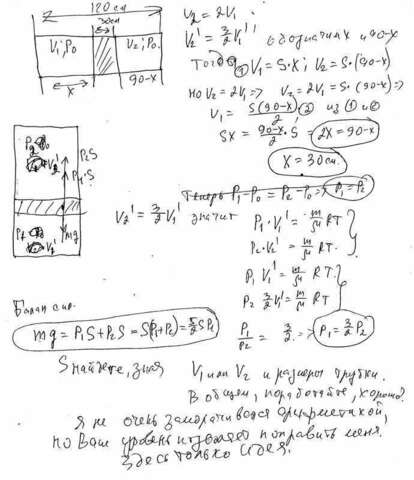 120 см
30см
V₁; P₀
V₂; P₀
x
90-x
V₂ = 2V₁
V₂' = 3/2 V₁'
обозначим x и 90-x
Тогда ① V₁ = S·x; V₂ = S·(90-x)
но V₂ = 2V₁ => V₂ = 2V₁ = S·(90-x) =>
V₁ = S(90-x)/2, ② из ① и ②
Sx = (90-x)/2 · S => 2x = 90-x
x = 30 см.
V₂'
P₂S
P₁·S
mg
V₁'
V₂' = 3/2 V₁'
Теперь P₁-P₀ = P₂-P₀ => P₁ = P₂
значит
P₁·V₁' = m/μ RT
P₂·V₂' = m/μ RT.
P₁ V₁' = m/μ RT.
P₂ 3/2 V₁' = m/μ RT
P₁/P₂ = 3/2 => P₁ = 3/2 P₂
Баланс сил.
mg = P₁S + P₂S = S(P₁+P₂) = 5/2 SP₁
S найдете, зная V₁ или V₂ и размеры трубки.
В общем, поработайте, хорошо?
Я не очень заморачивался арифметикой,
но Ваш уровень позволяет поправить меня.
Здесь только идея.